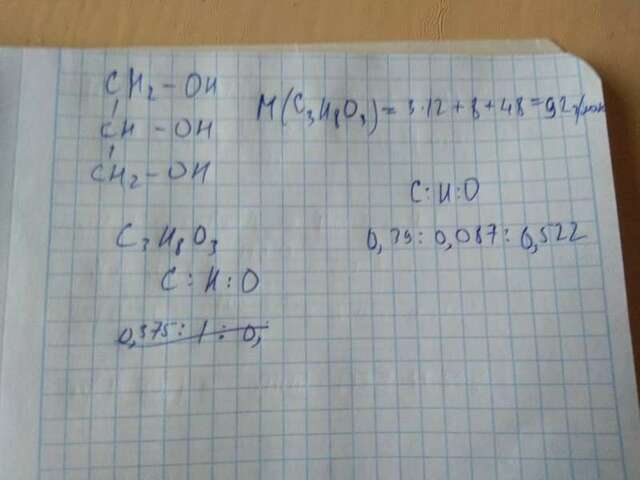 CH₂ - OH
CH - OH
CH₂ - OH
M(C₃H₈O₃) = 3·12 + 8 + 48 = 92 г/моль
C : H : O
0,39 : 0,087 : 0,522
C₃H₈O₃
C : H : O
0,375 : 1 : 0,